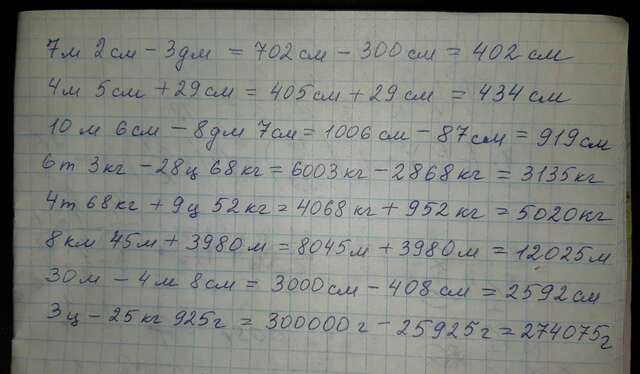 7м 2см - 3дм = 702см - 300см = 402см
4м 5см + 29см = 405см + 29см = 434см
10м 6см - 8дм 7см = 1006см - 87см = 919см
6т 3кг - 28ц 68кг = 6003кг - 2868кг = 3135кг
4т 68кг + 9ц 52кг = 4068кг + 952кг = 5020кг
8км 45м + 3980м = 8045м + 3980м = 12025м
30м - 4м 8см = 3000см - 408см = 2592см
3ц - 25кг 925г = 300000г - 25925г = 274075г